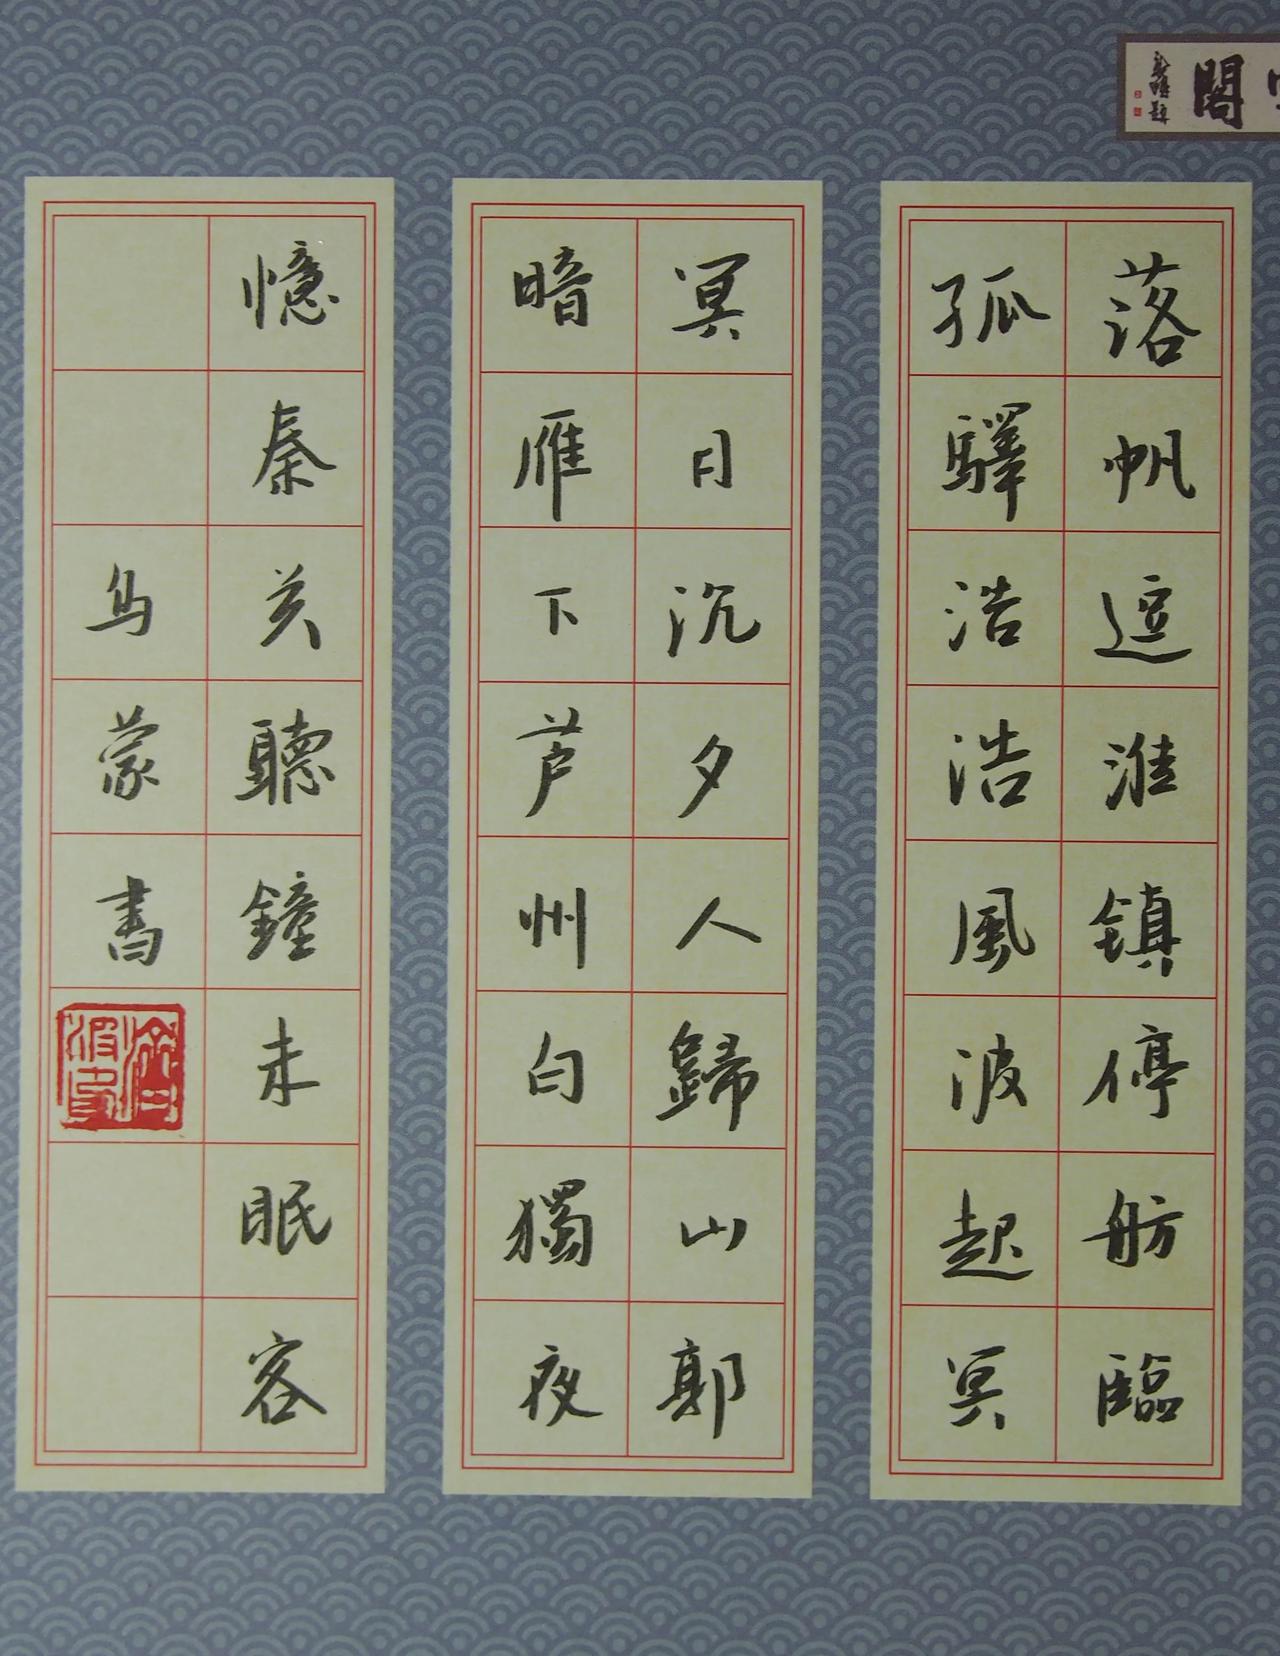 閣
落帆逗淮鎮停舫臨
孤驛浩浩風波起冥
冥日沉夕人歸山郭
暗雁下芦州白獨夜
憶秦关聽鐘未眠客
乌蒙書